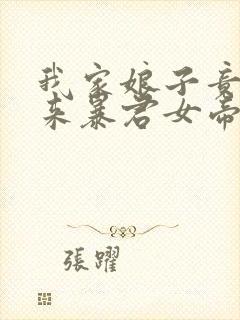 我家娘子竟
来暴君女帝
張躍